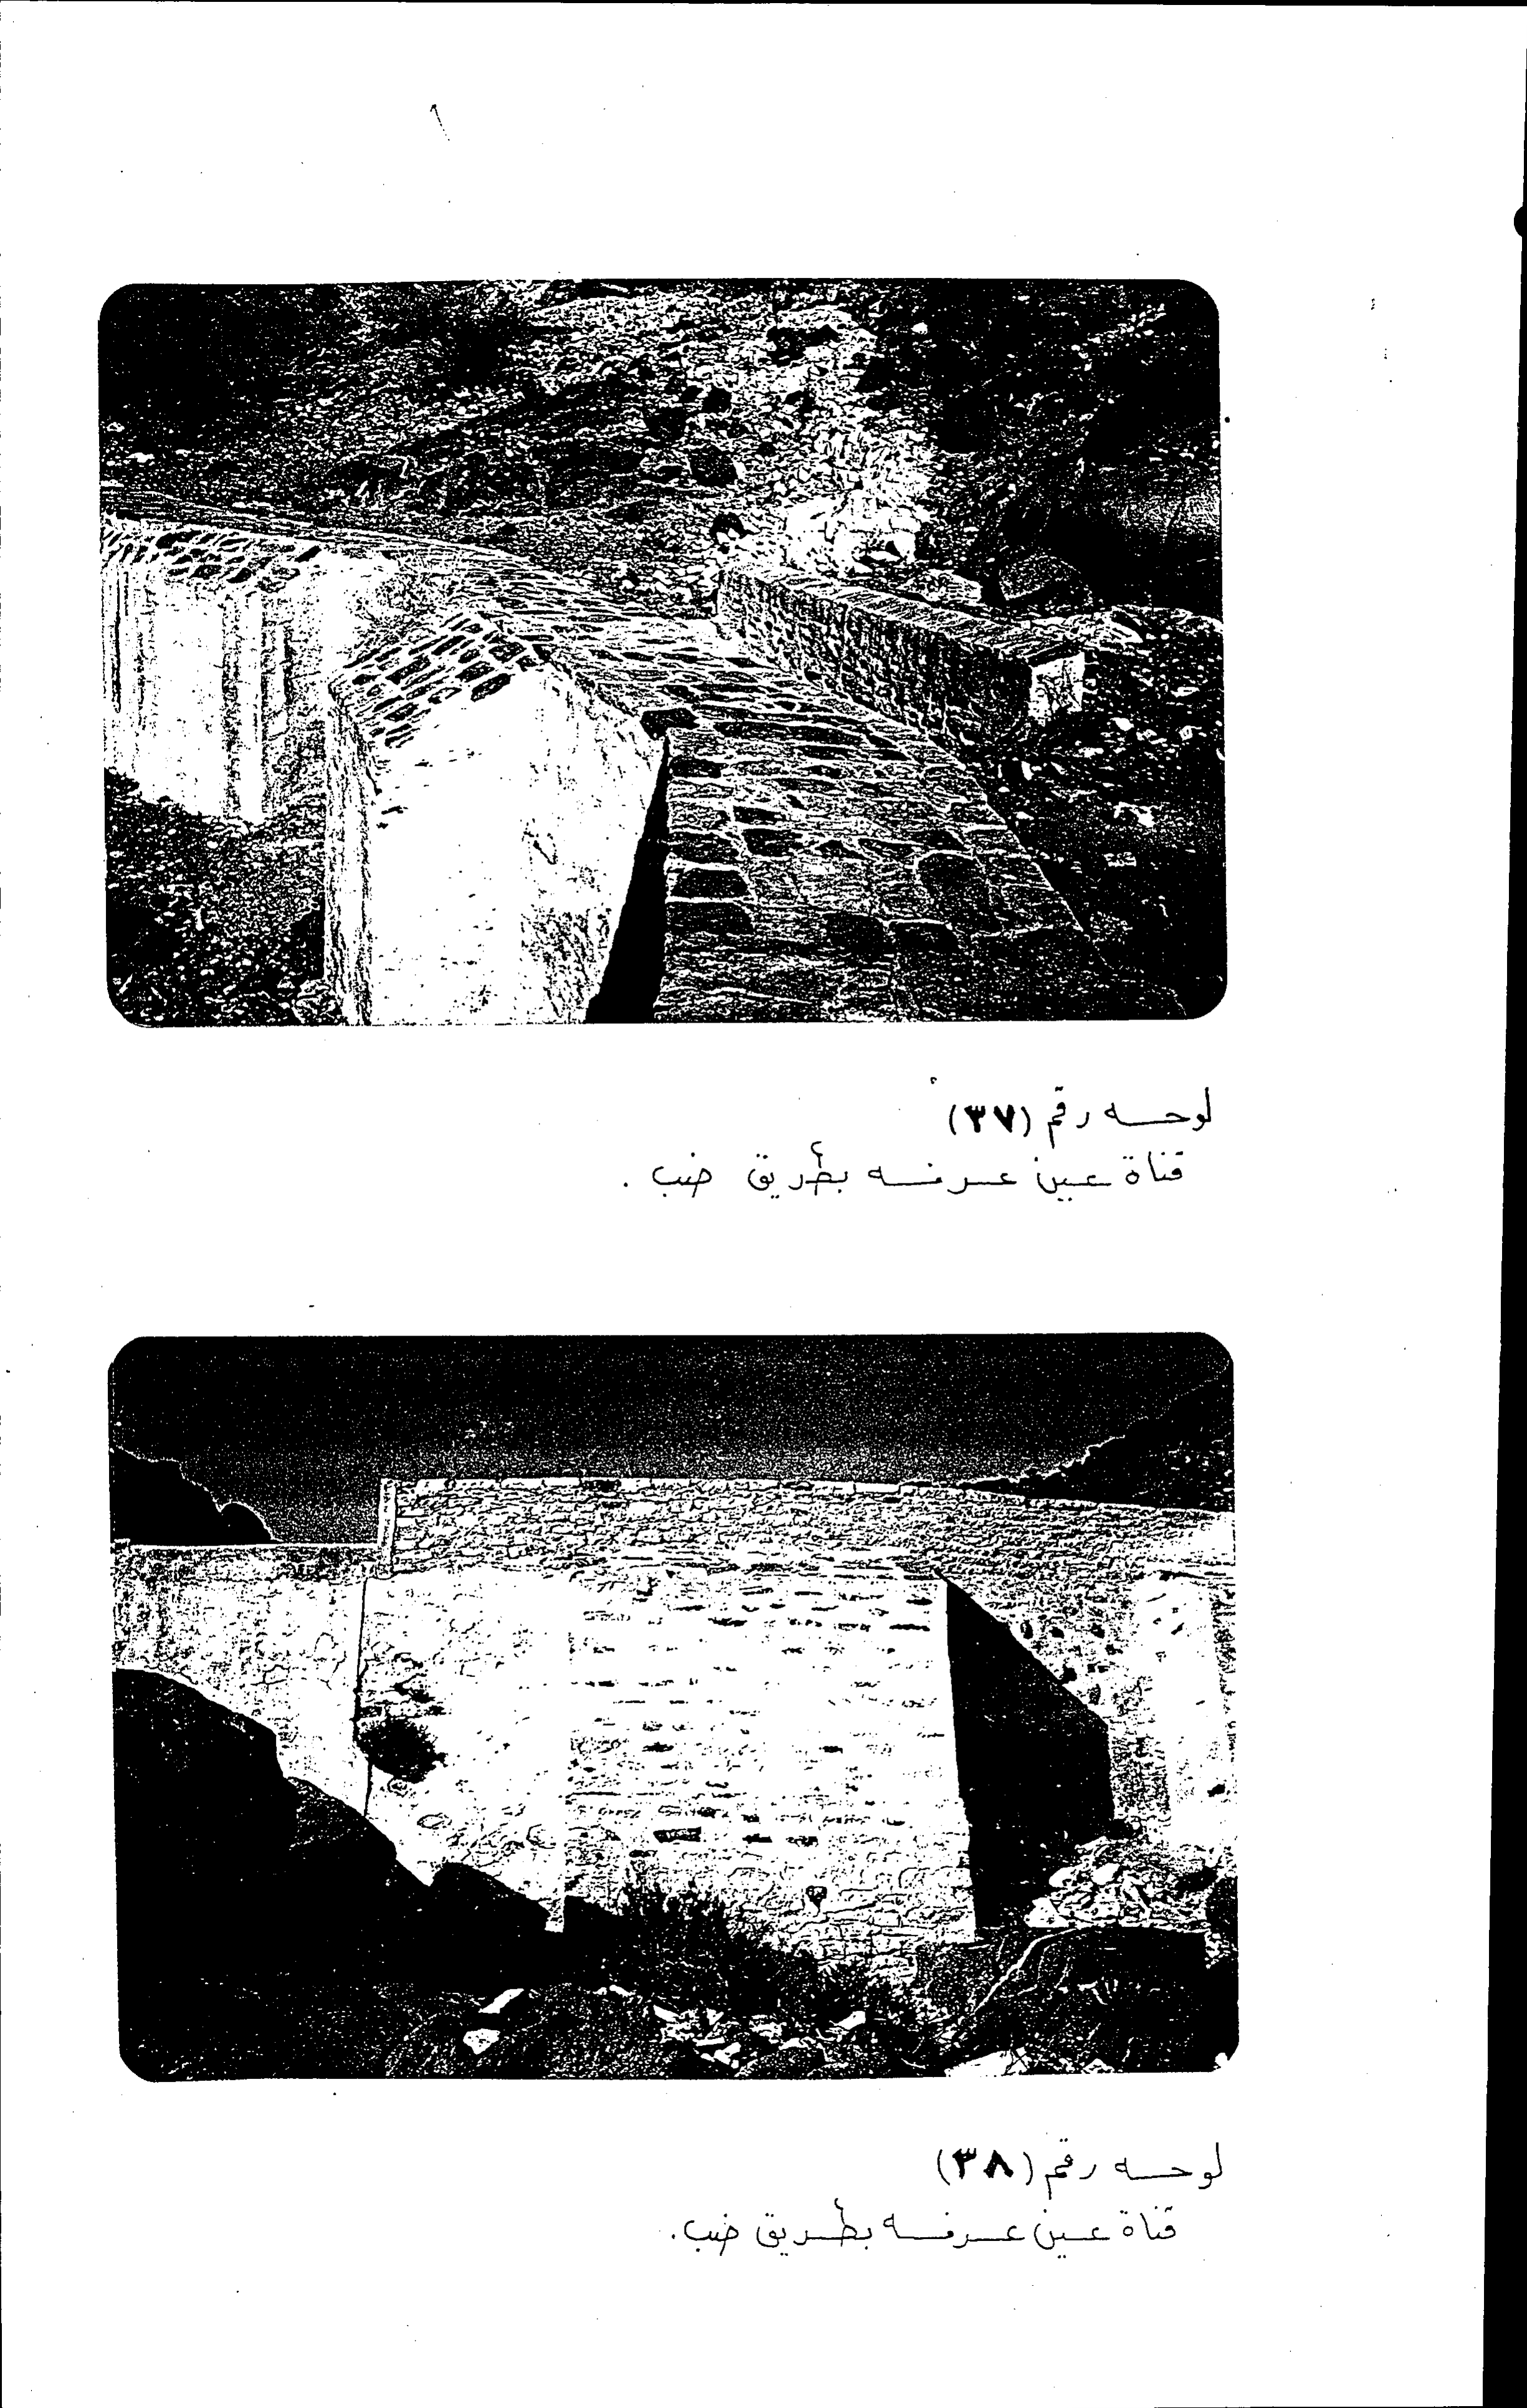 لوحه رقم (٣٧)
قناة عين عرفه بطريق ضب .
لوحه رقم (٣٨)
قناة عين عرفه بطريق ضب .